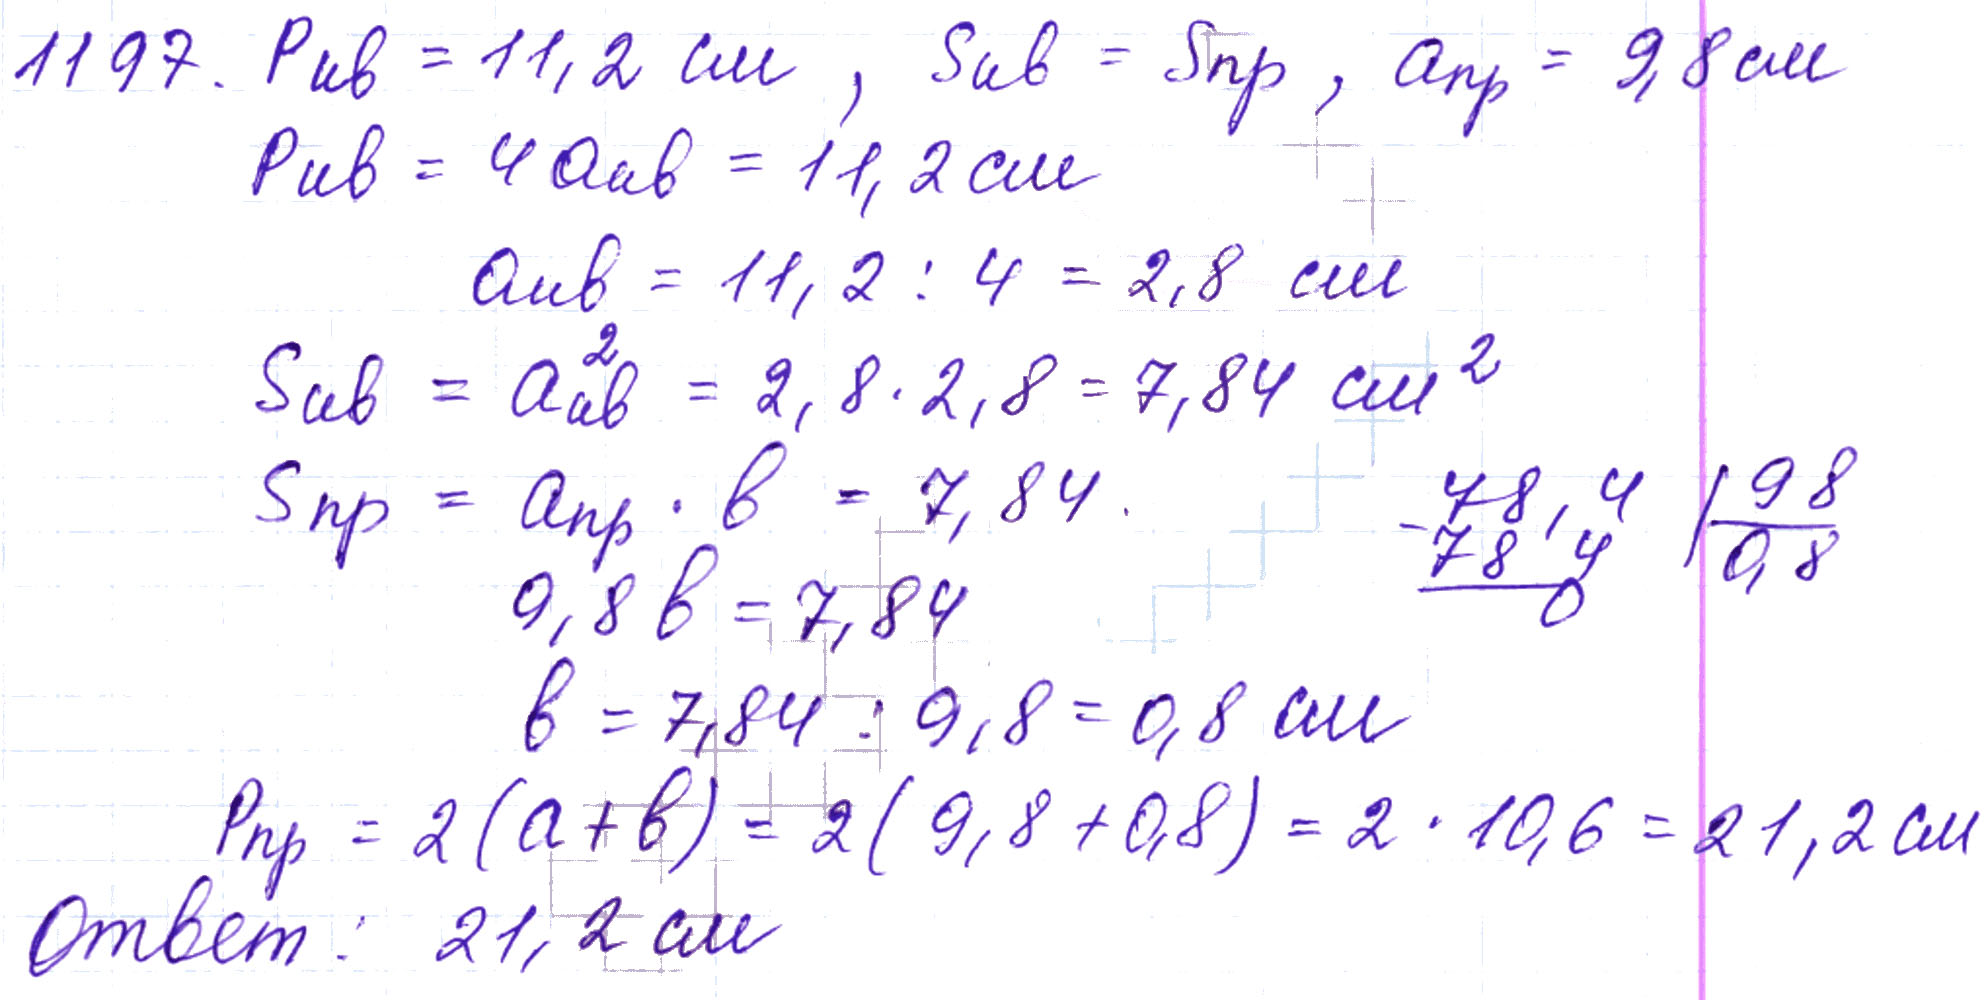 1197. Pкв = 11,2 см, Sкв = Sпр, aпр = 9,8 см
Pкв = 4aкв = 11,2 см
aкв = 11,2 : 4 = 2,8 см
Sкв = a²кв = 2,8 · 2,8 = 7,84 см²
Sпр = aпр · b = 7,84.
9,8b = 7,84
b = 7,84 : 9,8 = 0,8 см
78,4 | 98
- 78 4 | 0,8
0
Pпр = 2(a+b) = 2(9,8+0,8) = 2 · 10,6 = 21,2 см
Ответ: 21,2 см